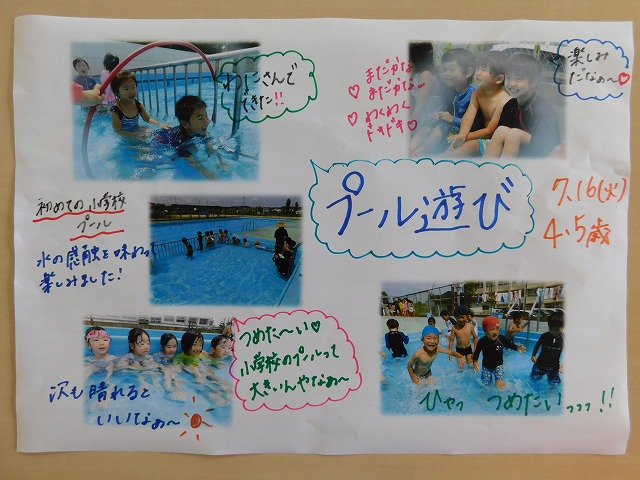 わにさんで
できた!!
まだかな
まだかな〜
わくわく
ドキドキ
楽しみ
だなぁ〜
プール遊び
7.16(火)
4.5歳
初めての小学校
プール
水の感触を味わって
楽しみました!
つめた〜い
小学校のプールって
大きいんやなぁ〜
次も晴れると
いいなぁ〜
ひゃっ つめたいっっっ!!